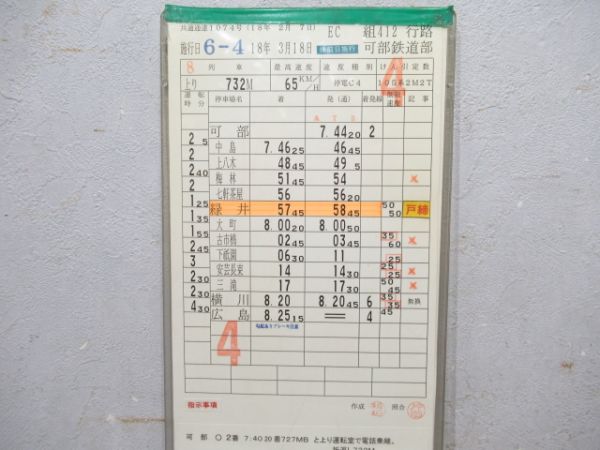 共通迄迄1074号(18年 2月 7日) EC 組412 行路
施行日 6-4 18年 3月18日 可部鉄道部
8 列車 最高速度 速度種別 けん引定数
上り 732M 65 KM/H 停電C4 105系2M2T
4
運転時分 停車場名 着 発(通) 着発線 制限速度 記事
ATS
可部 7.44 20 2
2 5 中島 7.46 25 46 45
2 上八木 48 45 49 5
2 40 梅林 51 45 54 ×
2 七軒茶屋 56 56 20
1 25 緑井 57 45 58 45 50 50 戸締
1 35 大町 8.00 20 8.00 50
1 55 古市橋 02 45 03 45 35 60 ×
2 45 下祇園 06 30 11 25
3 安芸長束 14 14 30 25 25 ×
2 30 三滝 17 17 30 50 45 ×
2 30 横川 8.20 8.20 45 6 35 35 無換
4 30 広島 8.25 15 = 4 45
4
指示事項 作成 照合
可部 〇2番 7:40 20着727MB とより運転室で電話乗継。
折返し732M